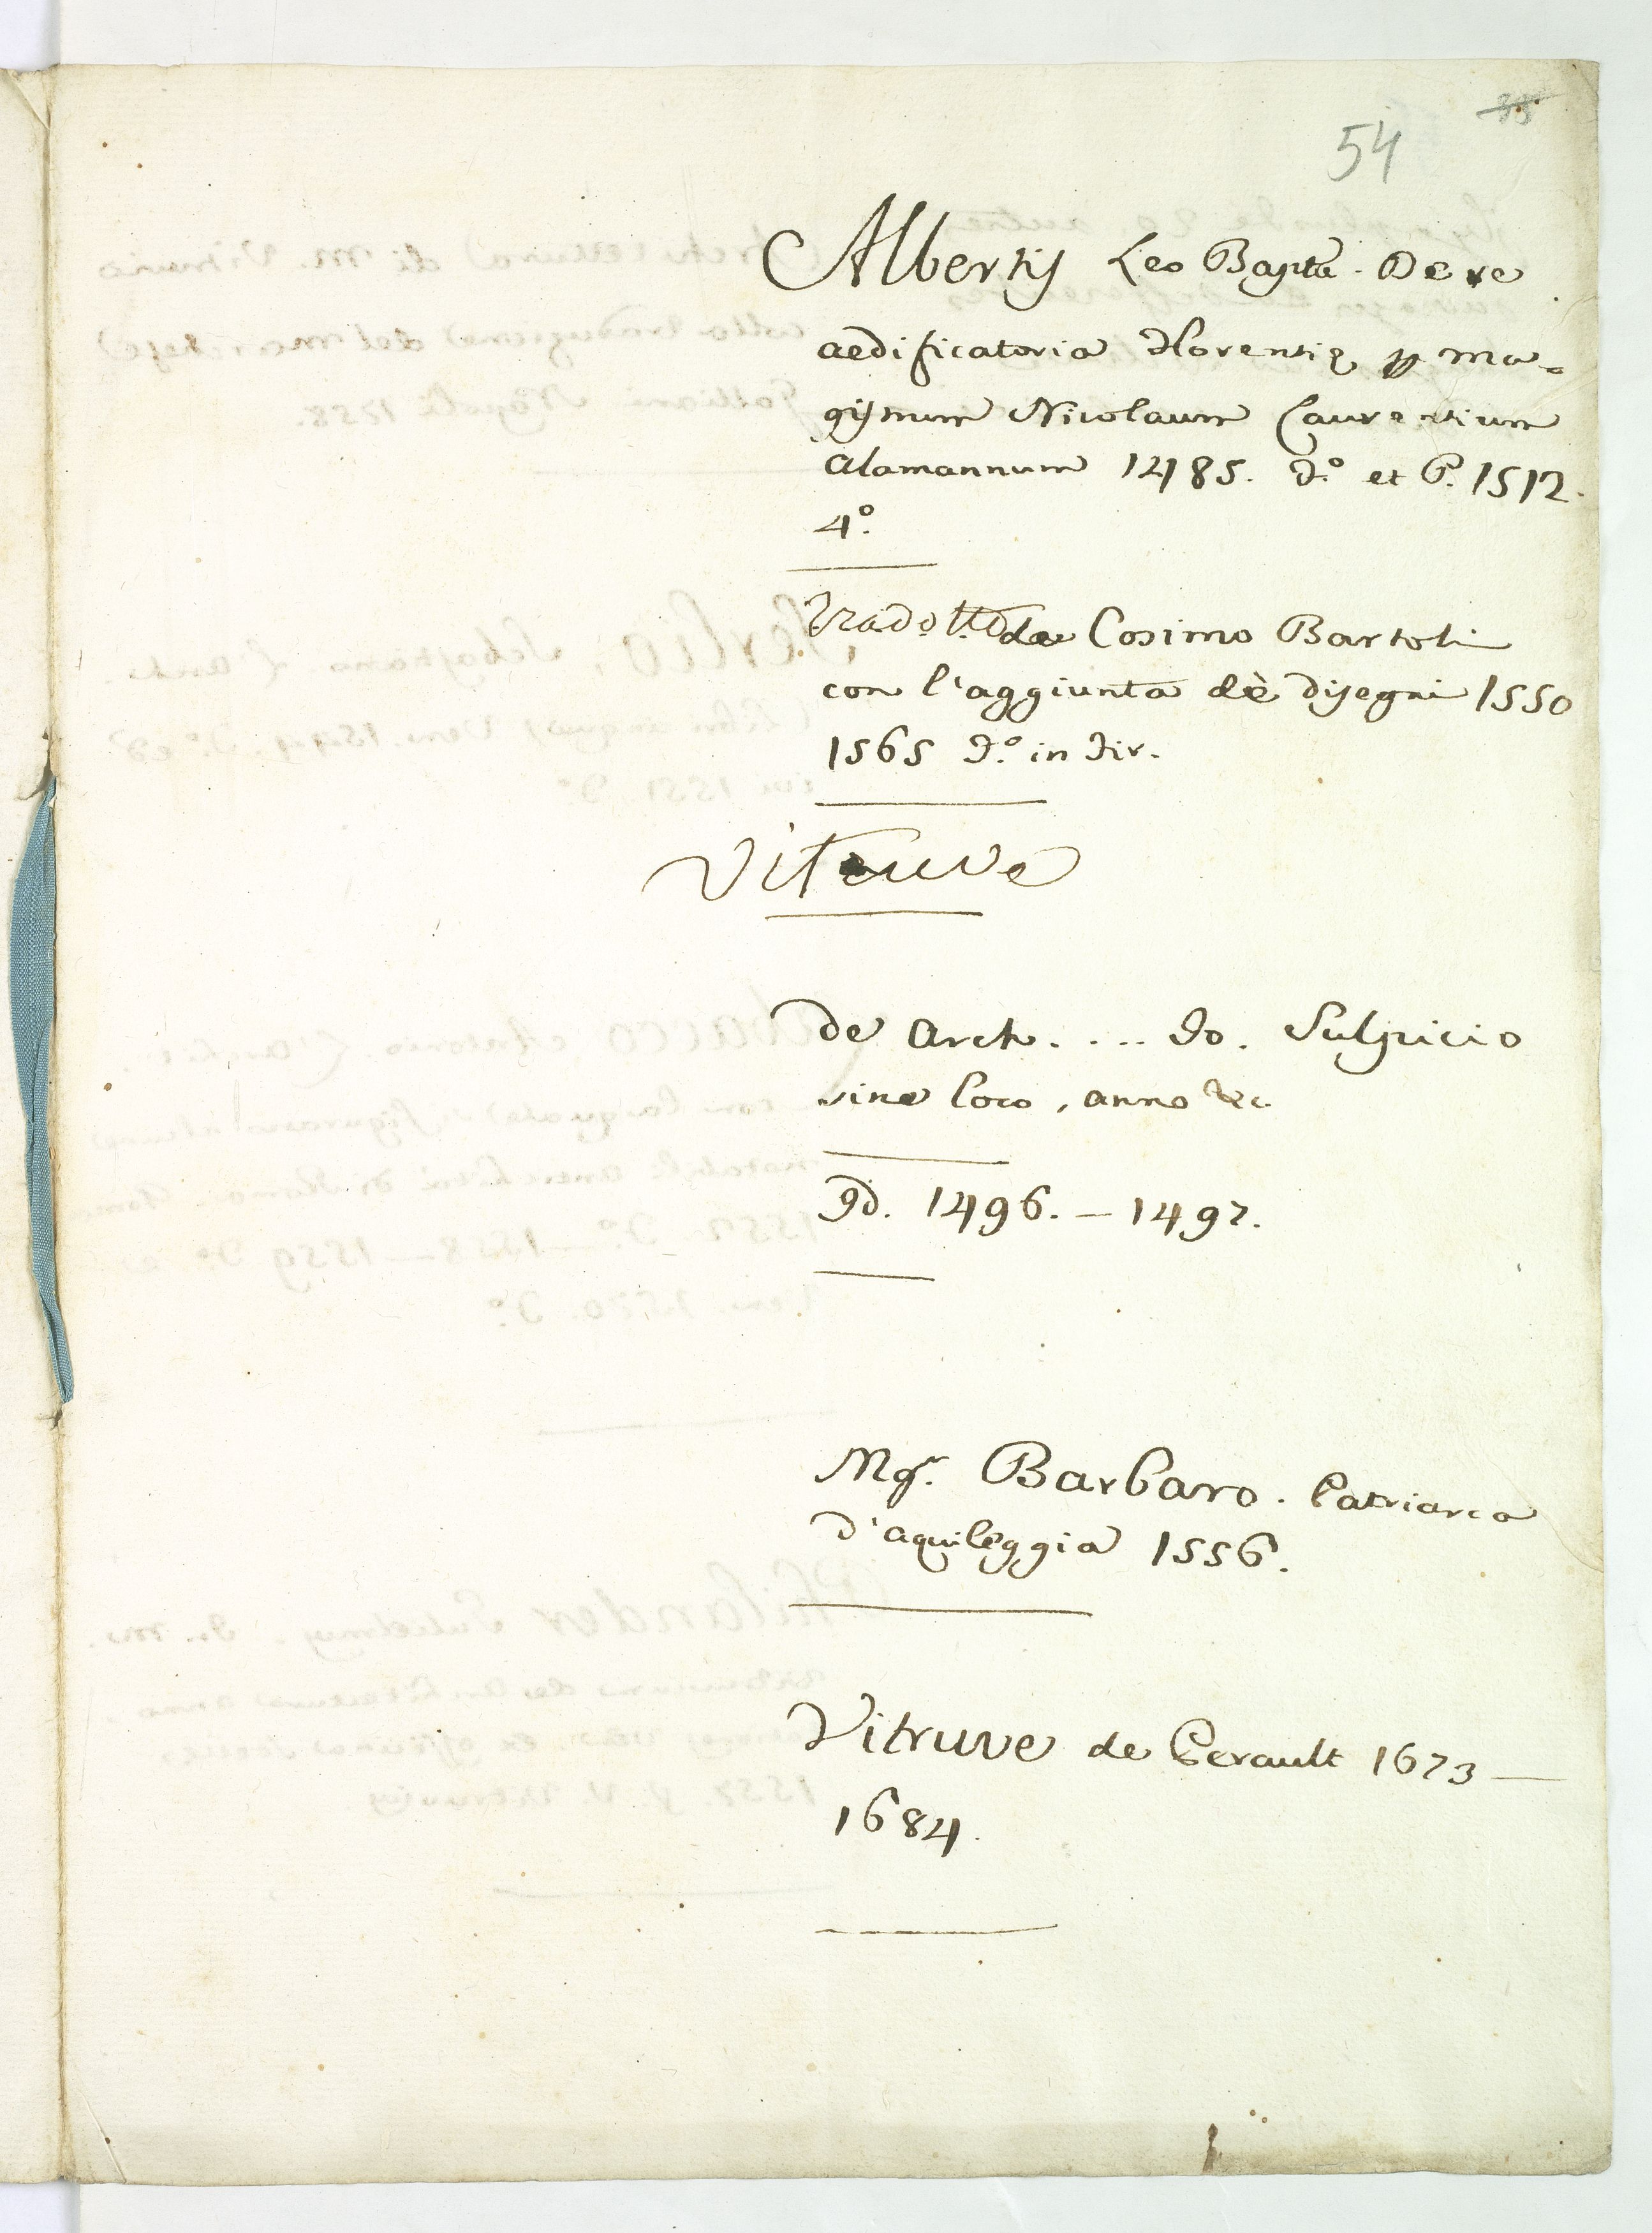 54
Albertis Leo Bapta. De re
aedificatoria Florentiæ p ma-
gistrum Nicolaum Laurentium
alamannum 1485. f.º et P. 1512.
4º.
Tradotta da Cosimo Bartoli
con l'aggiunta de disegni 1550
1565 f.º in fir.
Vitruve
de Arch. .... Jo. Sulpicio
sine loco, anno &c.
Id. 1496. - 1497.
Mgr. Barbaro. Patriarca
d'aquileggia 1556.
Vitruve de Perault 1673 —
1684.